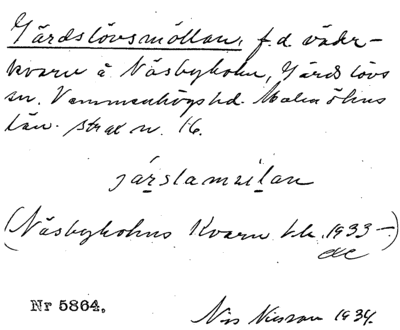 Gärdslövsmöllan, f.d. väder-
kvarn å Näsbyholm, Gärdslövs
sn. Vemmenhögs hd. Malmöhus
län. strax n. 16.
järslamziłan
(Näsbyholms Kvarn bh. 1933-)
Nr 5864,
Nis Nilsson 1934.